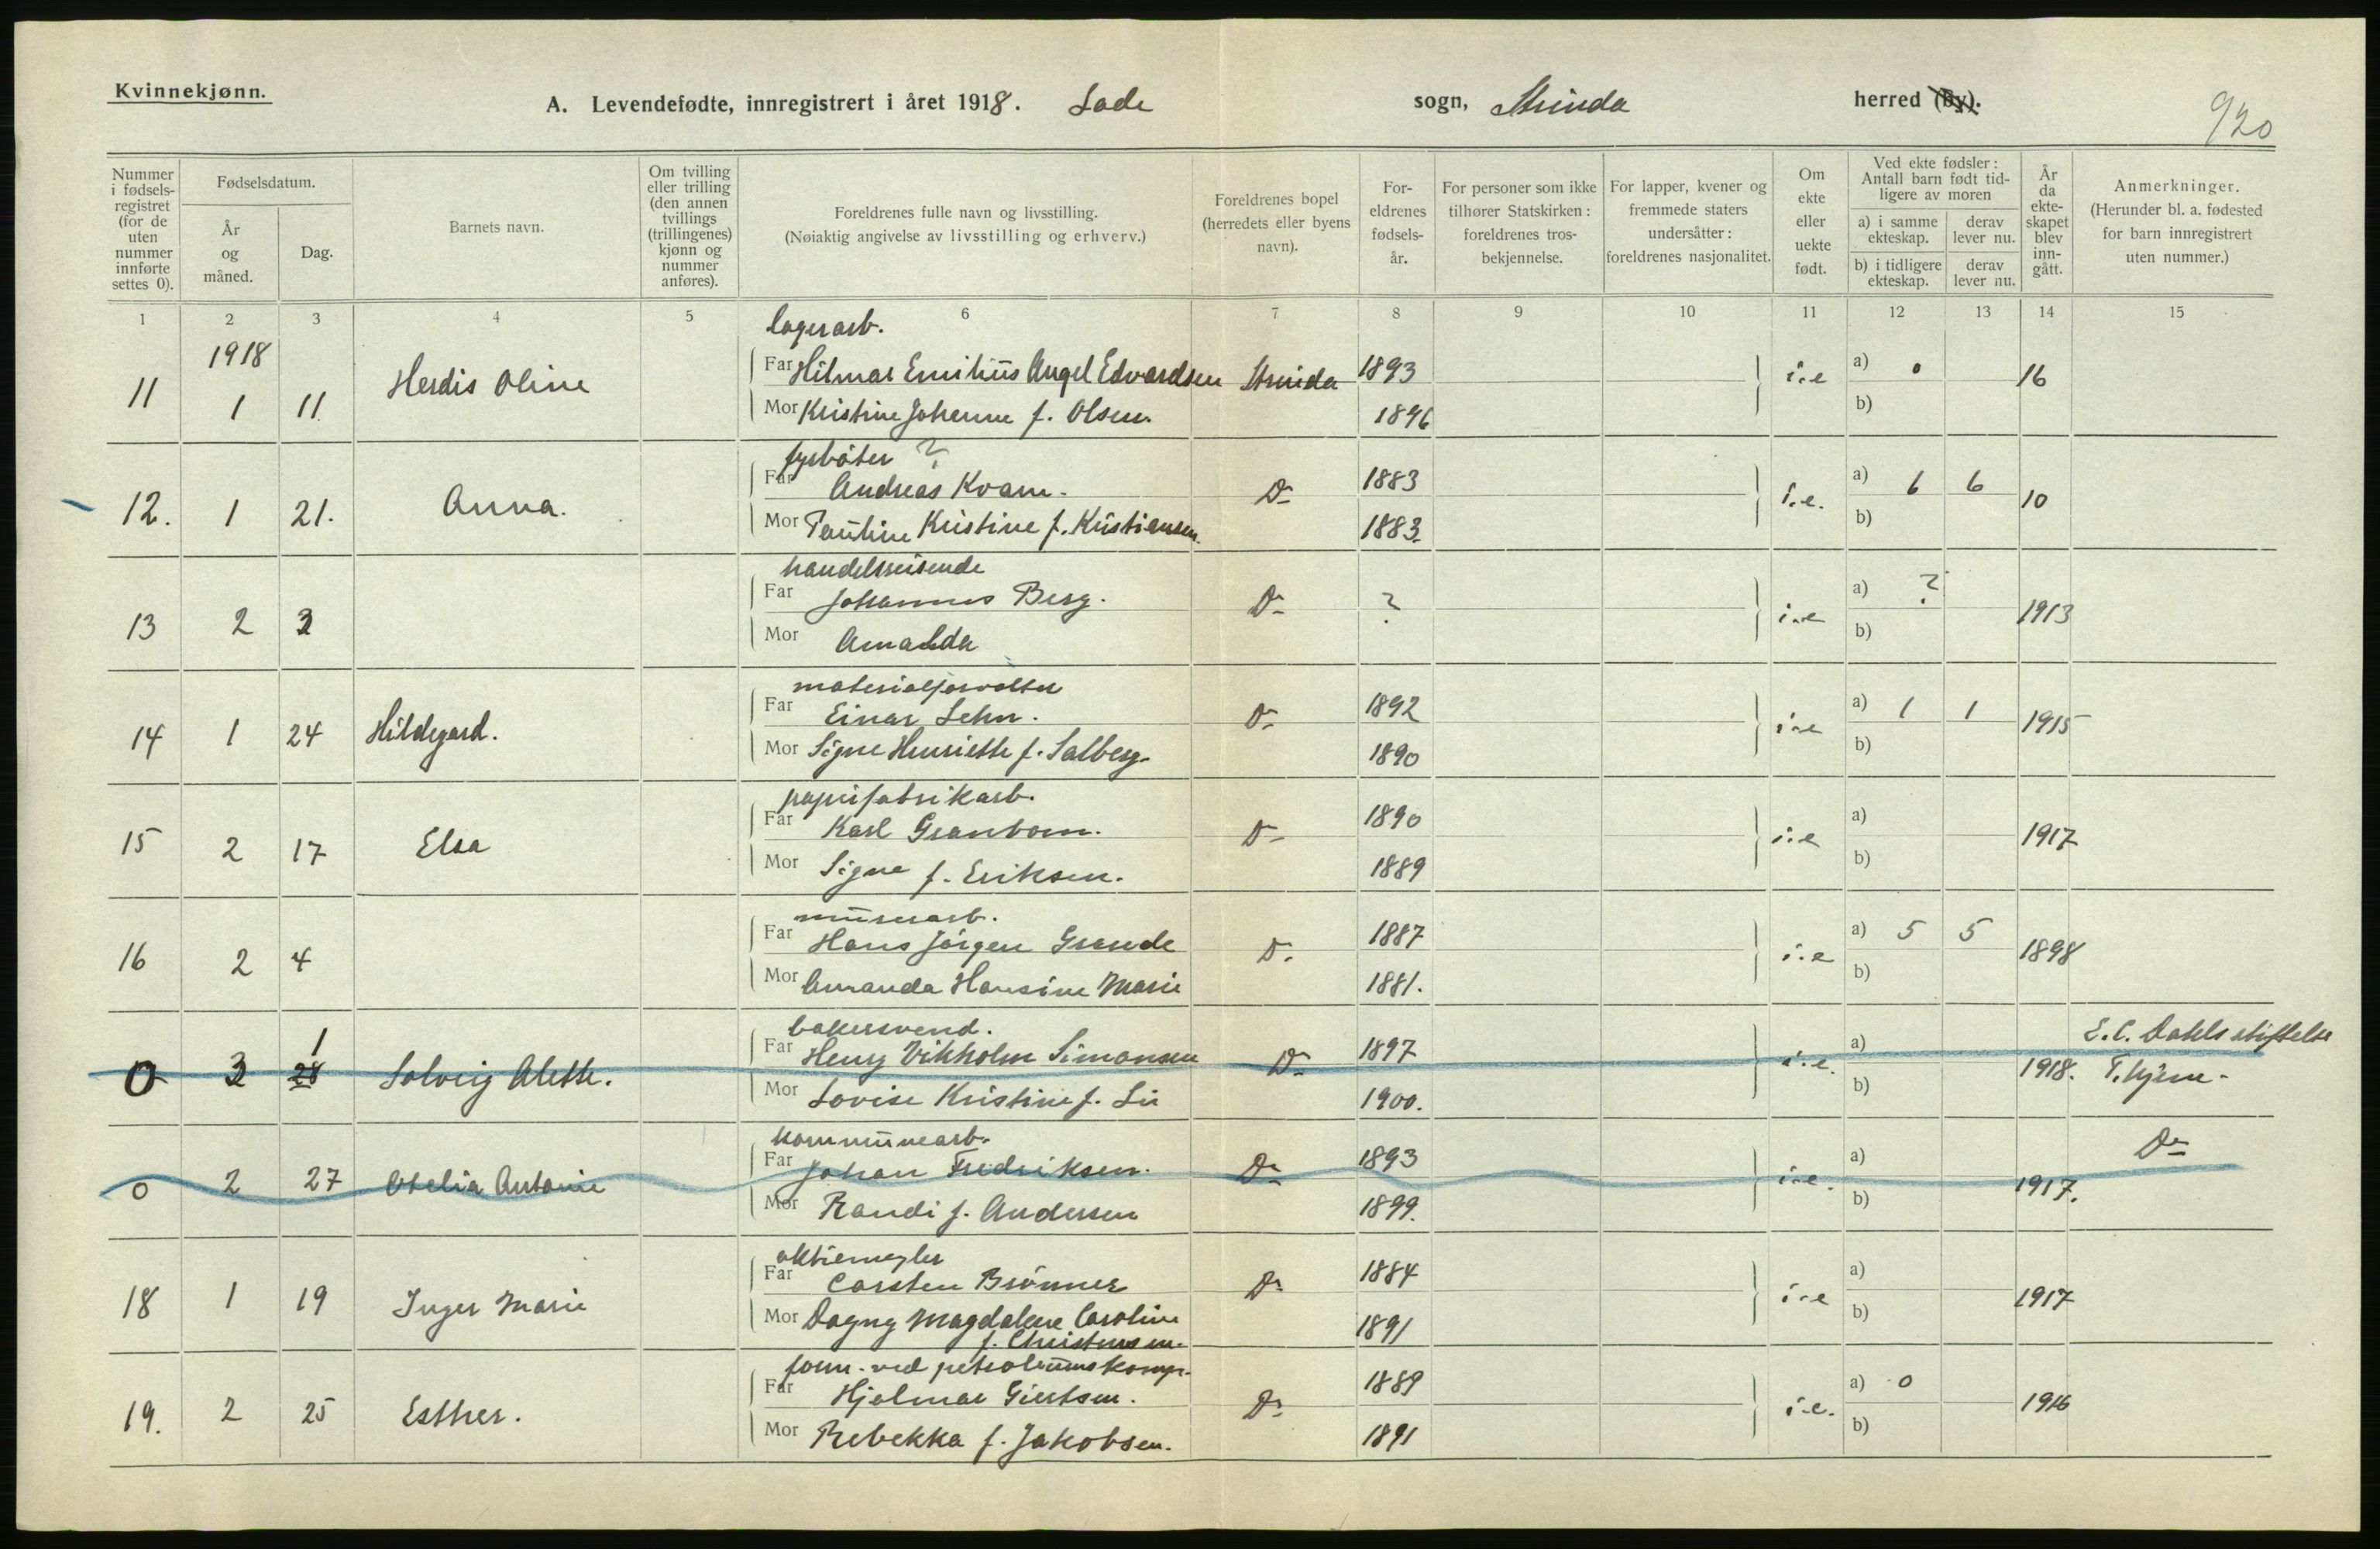 Kvinnekjønn.
A. Levendefødte, innregistrert i året 1918. Lade sogn, Strinda herred (By).
920
Nummer i fødsels-registret (for de uten nummer innførte settes 0).
Fødselsdatum.
År og måned.
Dag.
Barnets navn.
Om tvilling eller trilling (den annen tvillings (trillingenes) kjønn og nummer anføres).
Foreldrenes fulle navn og livsstilling.
(Nøiaktig angivelse av livsstilling og erhverv.)
Foreldrenes bopel (herredets eller byens navn).
For-eldrenes fødsels-år.
For personer som ikke tilhører Statskirken: foreldrenes tros-bekjennelse.
For lapper, kvener og fremmede staters undersåtter: foreldrenes nasjonalitet.
Om ekte eller uekte født.
Ved ekte fødsler: Antall barn født tid-ligere av moren
a) i samme ekteskap.
derav lever nu.
b) i tidligere ekteskap.
derav lever nu.
År da ekte-skapet blev inn-gått.
Anmerkninger.
(Herunder bl. a. fødested for barn innregistrert uten nummer.)
1 2 3 4 5 6 7 8 9 10 11 12 13 14 15
lagerarb.
1918
11 1 11 Herdis Oline Far Hilmar Emilius Angel Edvardsen Strinda 1893 i.e a) 0 16
Mor Kristine Johanne f. Olsen. 1896 b)
fyrbøter ?
12. 1 21. Anna. Far Andreas Kvam. Do 1883 i.e. a) 6 6 10
Mor Pauline Kristine f. Kristiansen. 1883. b)
handelsreisende
13 2 3 Far Johannes Berg. Do ? i.e a) ? 1913
Mor Amalda b)
materialforvalter
14 1 24 Hildegard. Far Einar Lehn. Do 1892 i.e a) 1 1 1915
Mor Signe Henriette f. Salberg. 1890 b)
papirfabrikarb.
15 2 17 Elsa Far Karl Granbom. Do 1890 i.e a) 1917
Mor Signe f. Eriksen. 1889 b)
murerarb.
16 2 4 Far Hans Jörgen Grande Do 1887 i.e a) 5 5 1898
Mor Amanda Hansine Marie 1881. b)
bakersvend.
0 3 1 28 Solveig Alette. Far Henry Vikholm Simonsen Do 1897 i.e. a) 1918. E. C. Dahls stiftelse
Mor Lovise Kristine f. Lii 1900. b) T.hjem.
kommunearb.
0 2 27 Otelia Antonie Far Johan Fredriksen. Do 1893 i.e. a) 1917. Do
Mor Randi f. Andersen 1899. b)
aktiemegler
18 1 19 Inger Marie Far Carsten Brönner Do 1884 i.e a) 1917
Mor Dagny Magdalene Caroline 1891 b)
f. Christensen.
form. ved petroleumskomp.
19. 2 25 Esther. Far Hjalmar Giertsen. Do 1889 i.e. a) 0 1916
Mor Rebekka f. Jakobsen. 1891 b)